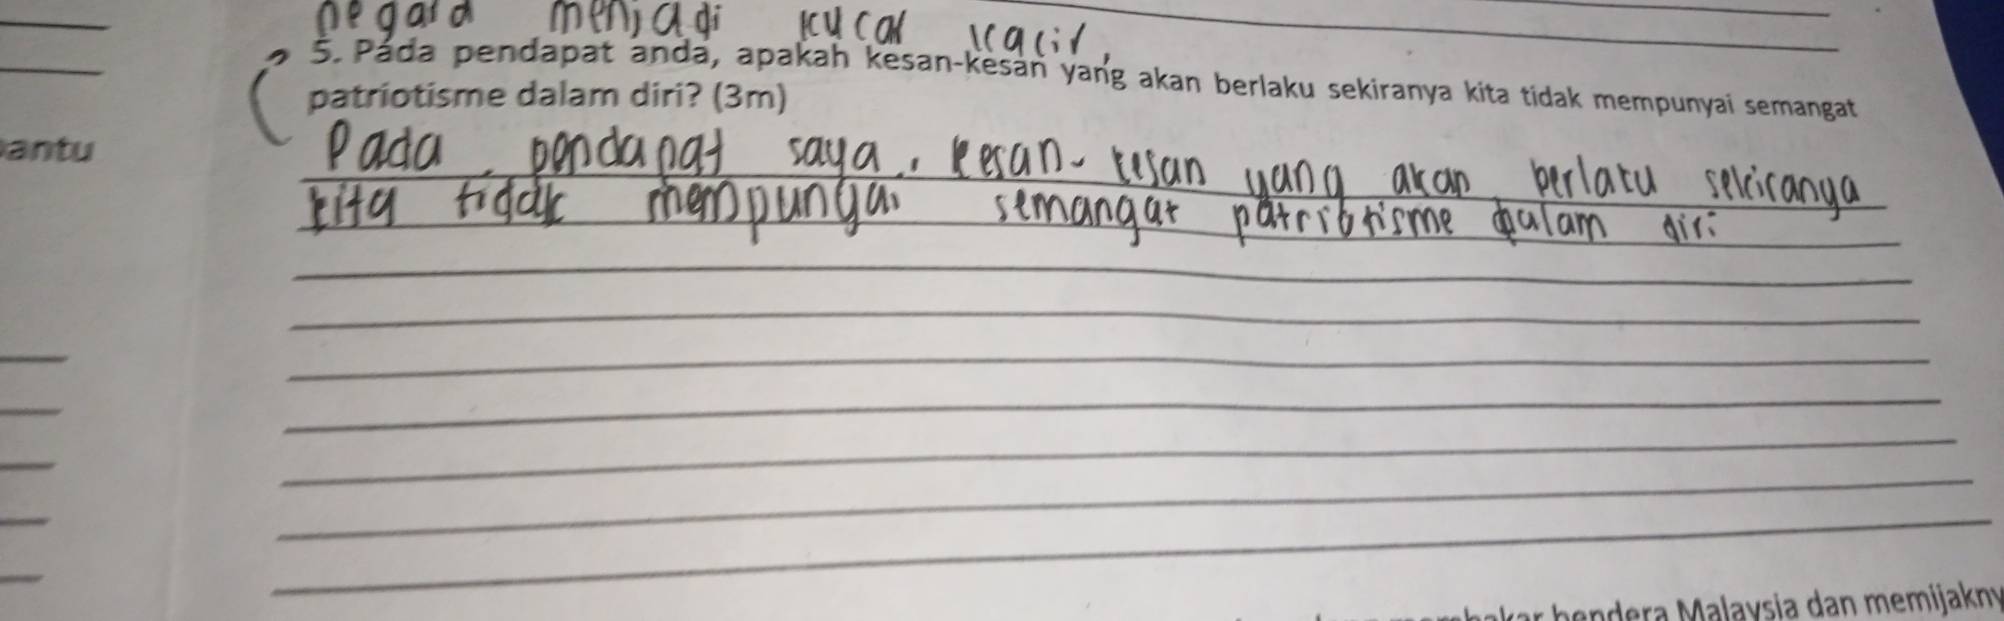 negara menjadi kucar kacir.
5. Pada pendapat anda, apakah kesan-kesan yang akan berlaku sekiranya kita tidak mempunyai semangat
patriotisme dalam diri? (3m)
antu
Pada pendapat saya, kesan-kesan yang akan berlaku sekiranya
kita tidak mempunyai semangat patriotisme dalam diri
bendera Malaysia dan memijakny